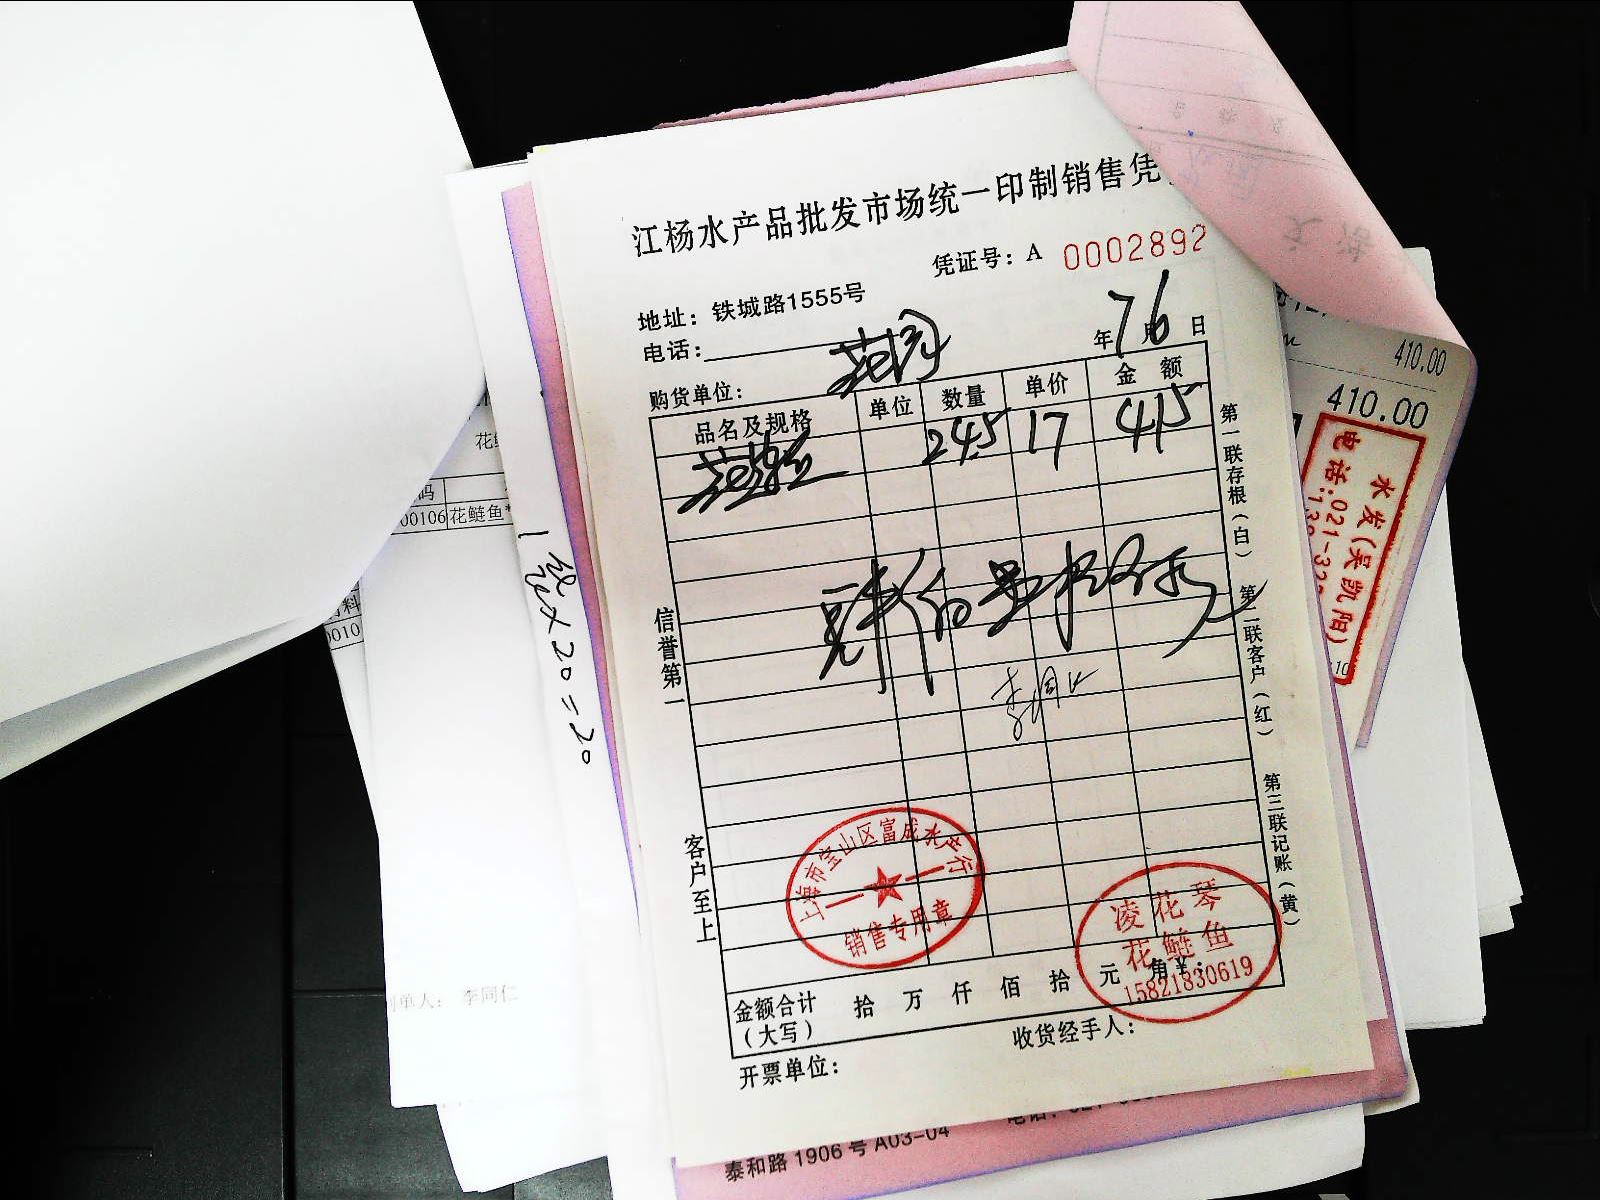 江杨水产品批发市场统一印制销售凭
凭证号：A 0002892
地址：铁城路1555号
电话：
年 7 月 6 日
购货单位：
品名及规格 单位 数量 单价 金额
245 17 415
信誉第一
客户至上
第一联存根（白） 第二联客户（红） 第三联记账（黄）
李同仁
上海市宝山区富成水产行
销售专用章
凌花琴
花鲢鱼
15821830619
金额合计（大写） 拾 万 仟 佰 拾 元 角 ¥：
开票单位：
收货经手人：
410.00
410.00
水发（吴凯阳）
电话：021-32
码
00106 花鲢鱼*
料
0010
1袋×20=20
制单人： 李同仁
泰和路1906号A03-04